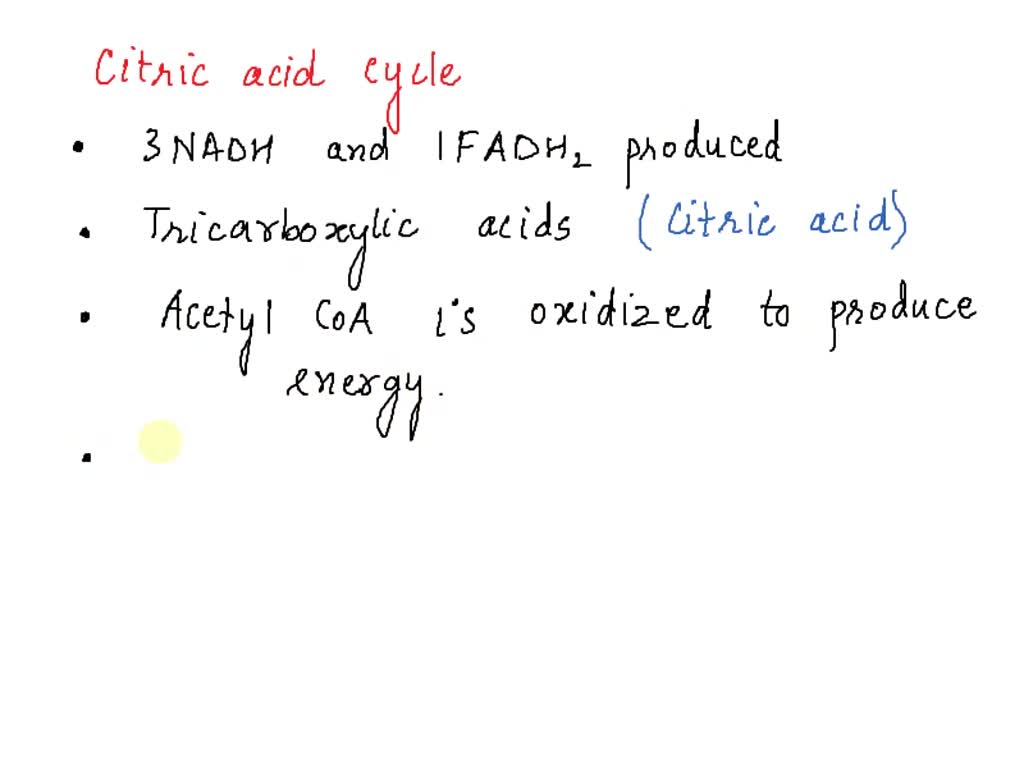 Citric acid cycle
• 3NADH and 1FADH₂ produced
• Tricarboxylic acids (Citric acid)
• Acetyl CoA is oxidized to produce
energy.
•